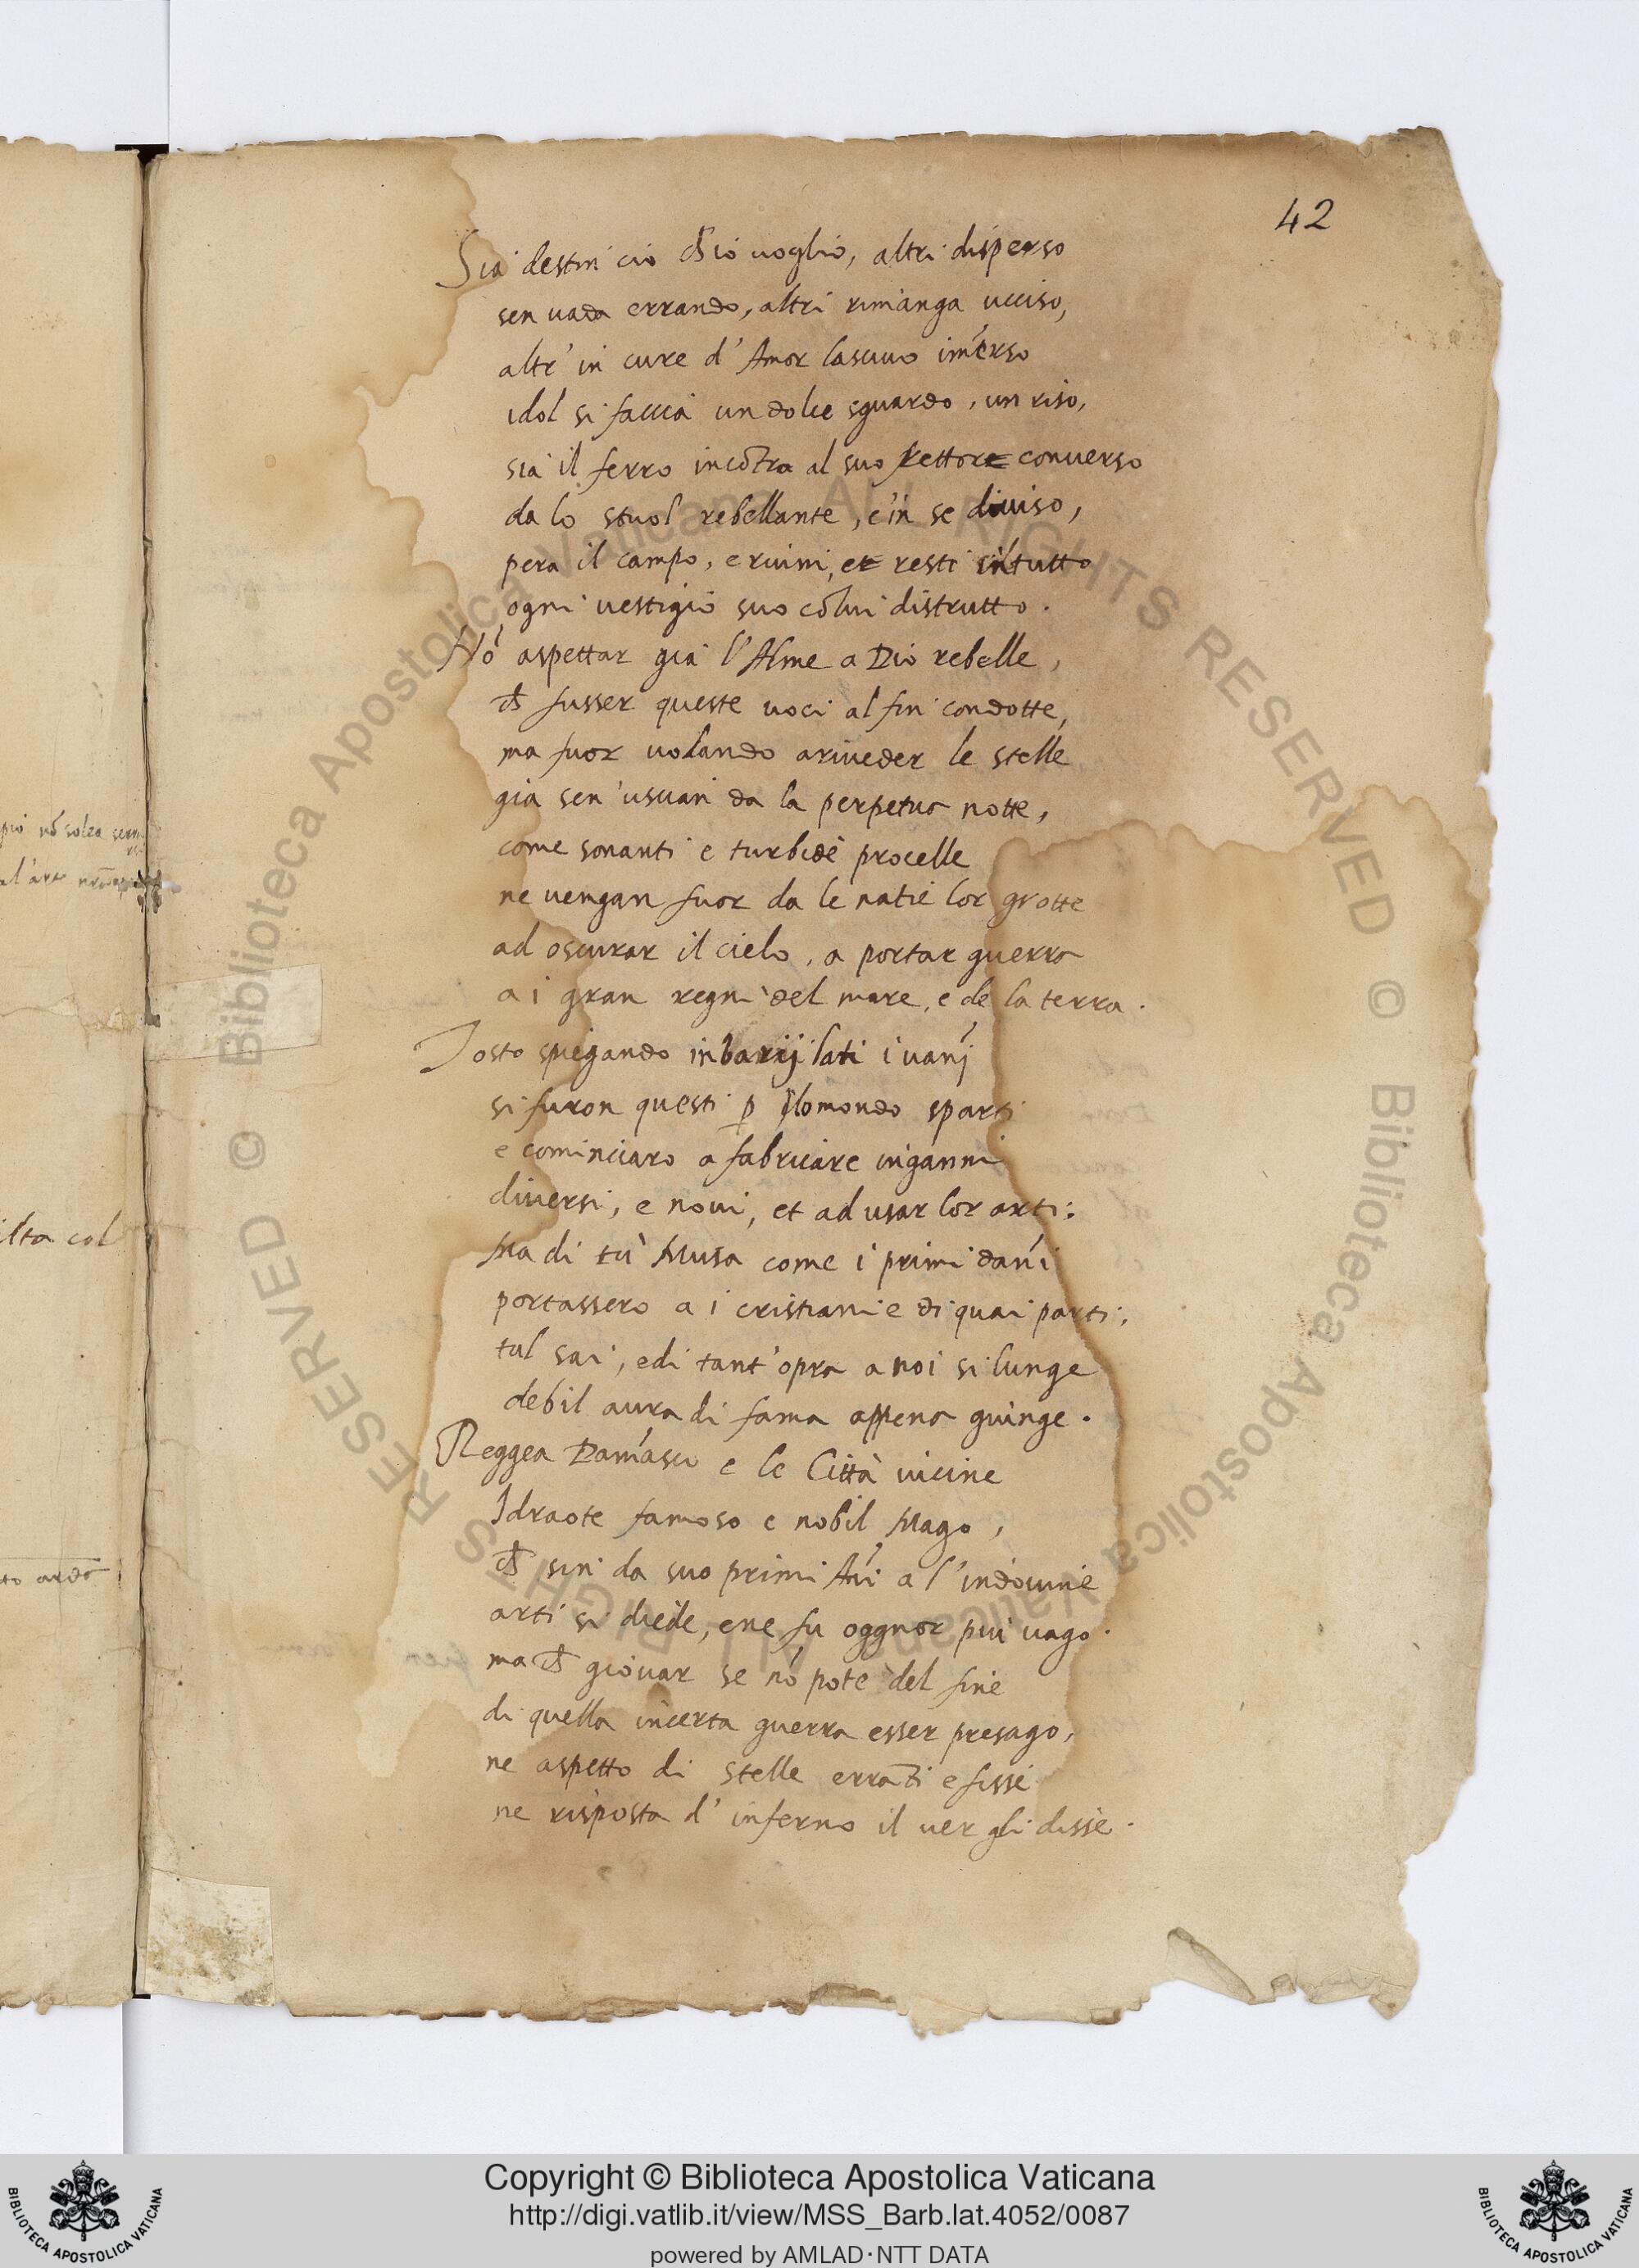 42
Sia destin ciò ch'io voglio, altri disperso
sen vada errando, altri rimanga ucciso,
altr' in cure d' Amor lascivo im̃erso
idol si faccia un dolce sguardo, un riso,
sia il ferro incõtra al suo rettore converso
da lo stuol rebellante, e'n se diviso,
pera il campo, e ruini, et resti in tutto
ogni vestigio suo cõ lui distrutto.
Nõ aspettar già l'Alme a Dio rebelle,
ch̃ fusser queste voci al fin condotte,
ma fuor volando a riveder le stelle
gia sen' uscian da la perpetua notte,
come sonanti e turbide procelle
ne vengan fuor da le natie lor grotte
ad oscurar il cielo, a portar guerra
a i gran regni del mare, e de la terra.
Tosto spiegando in barij lati i van̄i
si furon questi p̱ lo mondo sparti
e cominciaro a fabricare inganni
diversi, e novi, et ad usar lor arti:
Ma di tù Musa come i primi dan̄i
portassero a i cristiani e di quai parti;
tul sai, e di tant'opra a noi si lunge
debil aura di fama appena giunge.
Reggea Dam̃asco e le Città vicine
Idraote famoso e nobil Mago,
ch̃ sin da suo primi An̄i a l'indovine
arti si diede, e ne fu oggnor più vago.
ma ch̃ giovar se nõ pote del fine
di quella incerta guerra esser presago,
ne aspetto di stelle errãti e fisse
ne risposta d' inferno il ver gli disse.
ilta col
to ardo
Copyright © Biblioteca Apostolica Vaticana
http://digi.vatlib.it/view/MSS_Barb.lat.4052/0087
powered by AMLAD·NTT DATA
BIBLIOTECA APOSTOLICA VATICANA
BIBLIOTECA APOSTOLICA VATICANA
© Biblioteca Apostolica Vaticana ALL RIGHTS RESERVED © Biblioteca Apostolica Vaticana ALL RIGHTS RESERVED